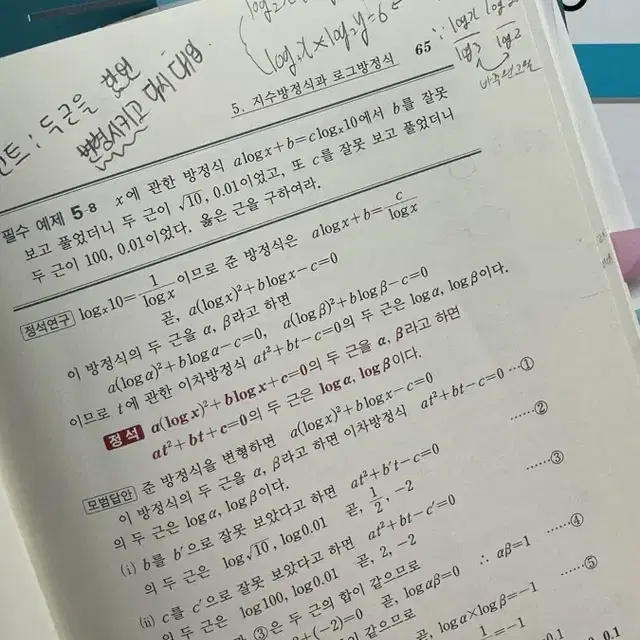 log₂x × log₂y = 6
두 근을
변형시키고 다시 대입
5. 지수방정식과 로그방정식 65
필수 예제 5-8 x에 관한 방정식 alogx+b=clogₓ10에서 b를 잘못
보고 풀었더니 두 근이 √10, 0.01이었고, 또 c를 잘못 보고 풀었더니
두 근이 100, 0.01이었다. 옳은 근을 구하여라.
정석연구 logₓ10=1/logx 이므로 준 방정식은 alogx+b=c/logx
곧, a(logx)²+blogx-c=0
이 방정식의 두 근을 α, β라고 하면
a(logα)²+blogα-c=0, a(logβ)²+blogβ-c=0
이므로 t에 관한 이차방정식 at²+bt-c=0의 두 근은 logα, logβ이다.
정석 a(logx)²+blogx+c=0의 두 근을 α, β라고 하면
at²+bt+c=0의 두 근은 logα, logβ이다.
모범답안 준 방정식을 변형하면 a(logx)²+blogx-c=0
이 방정식의 두 근을 α, β라고 하면 이차방정식 at²+bt-c=0 …①
의 두 근은 logα, logβ이다.
(i) b를 b′으로 잘못 보았다고 하면 at²+b′t-c=0 ……②
의 두 근은 log√10, log0.01 곧, 1/2, -2
(ii) c를 c′으로 잘못 보았다고 하면 at²+bt-c′=0 ……③
의 두 근은 log100, log0.01 곧, 2, -2
③은 두 근의 합이 같으므로
+(-2)=0 곧, logαβ=0 ∴ αβ=1 ……④
이 같으므로 곧, logα×logβ=-1 ……⑤